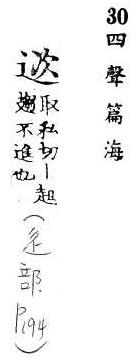 30 四聲篇海
取私切｜趄
不進也
(辵部 P194)